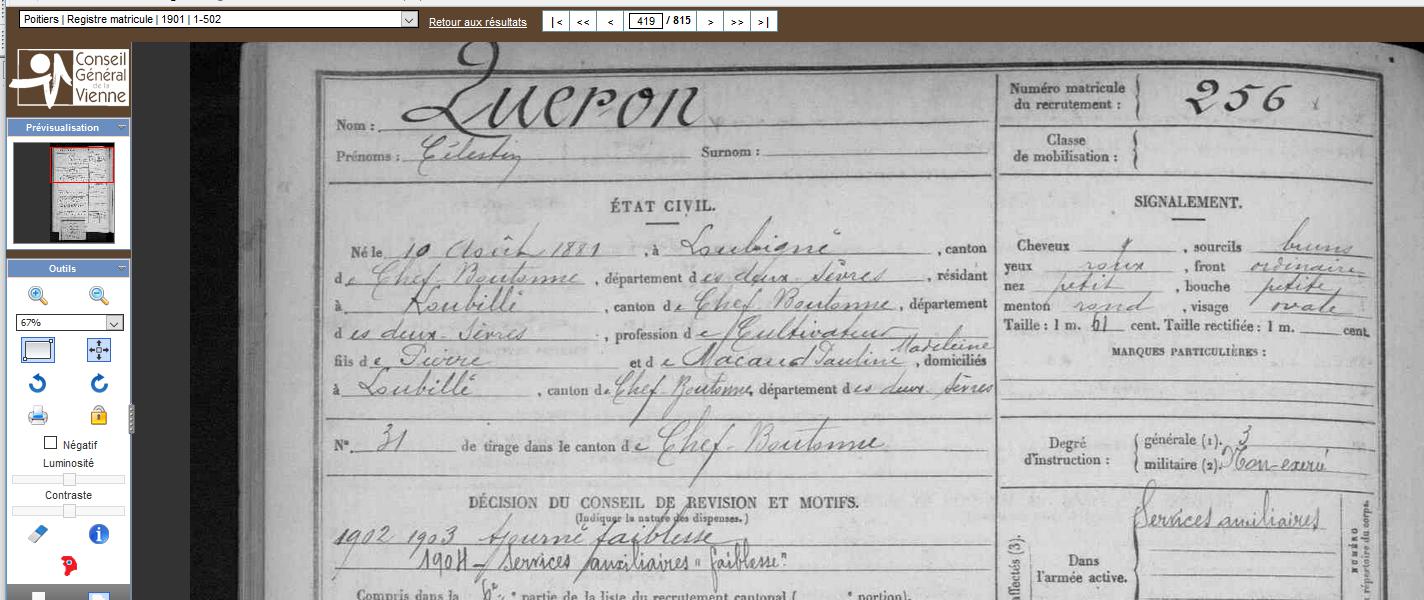 Poitiers | Registre matricule | 1901 | 1-502
Retour aux résultats
|< << < 419 / 815 > >> >|
Conseil
Général
de la
Vienne
Prévisualisation
Outils
67%
Négatif
Luminosité
Contraste
Nom : Queron
Prénoms : Célestin Surnom :
Numéro matricule
du recrutement : 256
Classe
de mobilisation :
ÉTAT CIVIL.
Né le 10 Août 1881, à Loubigné, canton
de Chef Boutonne, département des deux Sèvres, résidant
à Loubillé, canton de Chef Boutonne, département
des deux Sèvres, profession de Cultivateur
fils de Pierre et de Macaud Pauline Madeleine, domiciliés
à Loubillé, canton de Chef Boutonne, département des deux Sèvres
N° 31 de tirage dans le canton de Chef-Boutonne
SIGNALEMENT.
Cheveux, sourcils bruns
yeux roux, front ordinaire
nez petit, bouche petite
menton rond, visage ovale
Taille : 1 m. 61 cent. Taille rectifiée : 1 m. cent.
MARQUES PARTICULIÈRES :
Degré
d'instruction :
générale (1). 3
militaire (2). Non exercé
DÉCISION DU CONSEIL DE REVISION ET MOTIFS.
(Indiquer la nature des dispenses.)
1902 1903 Ajourné faiblesse
1904 - Services auxiliaires "faiblesse"
Compris dans la partie de la liste du recrutement cantonal ( portion).
Services auxiliaires
Dans
l'armée active.
affectés (3).
NUMÉRO
répertoire du corps.